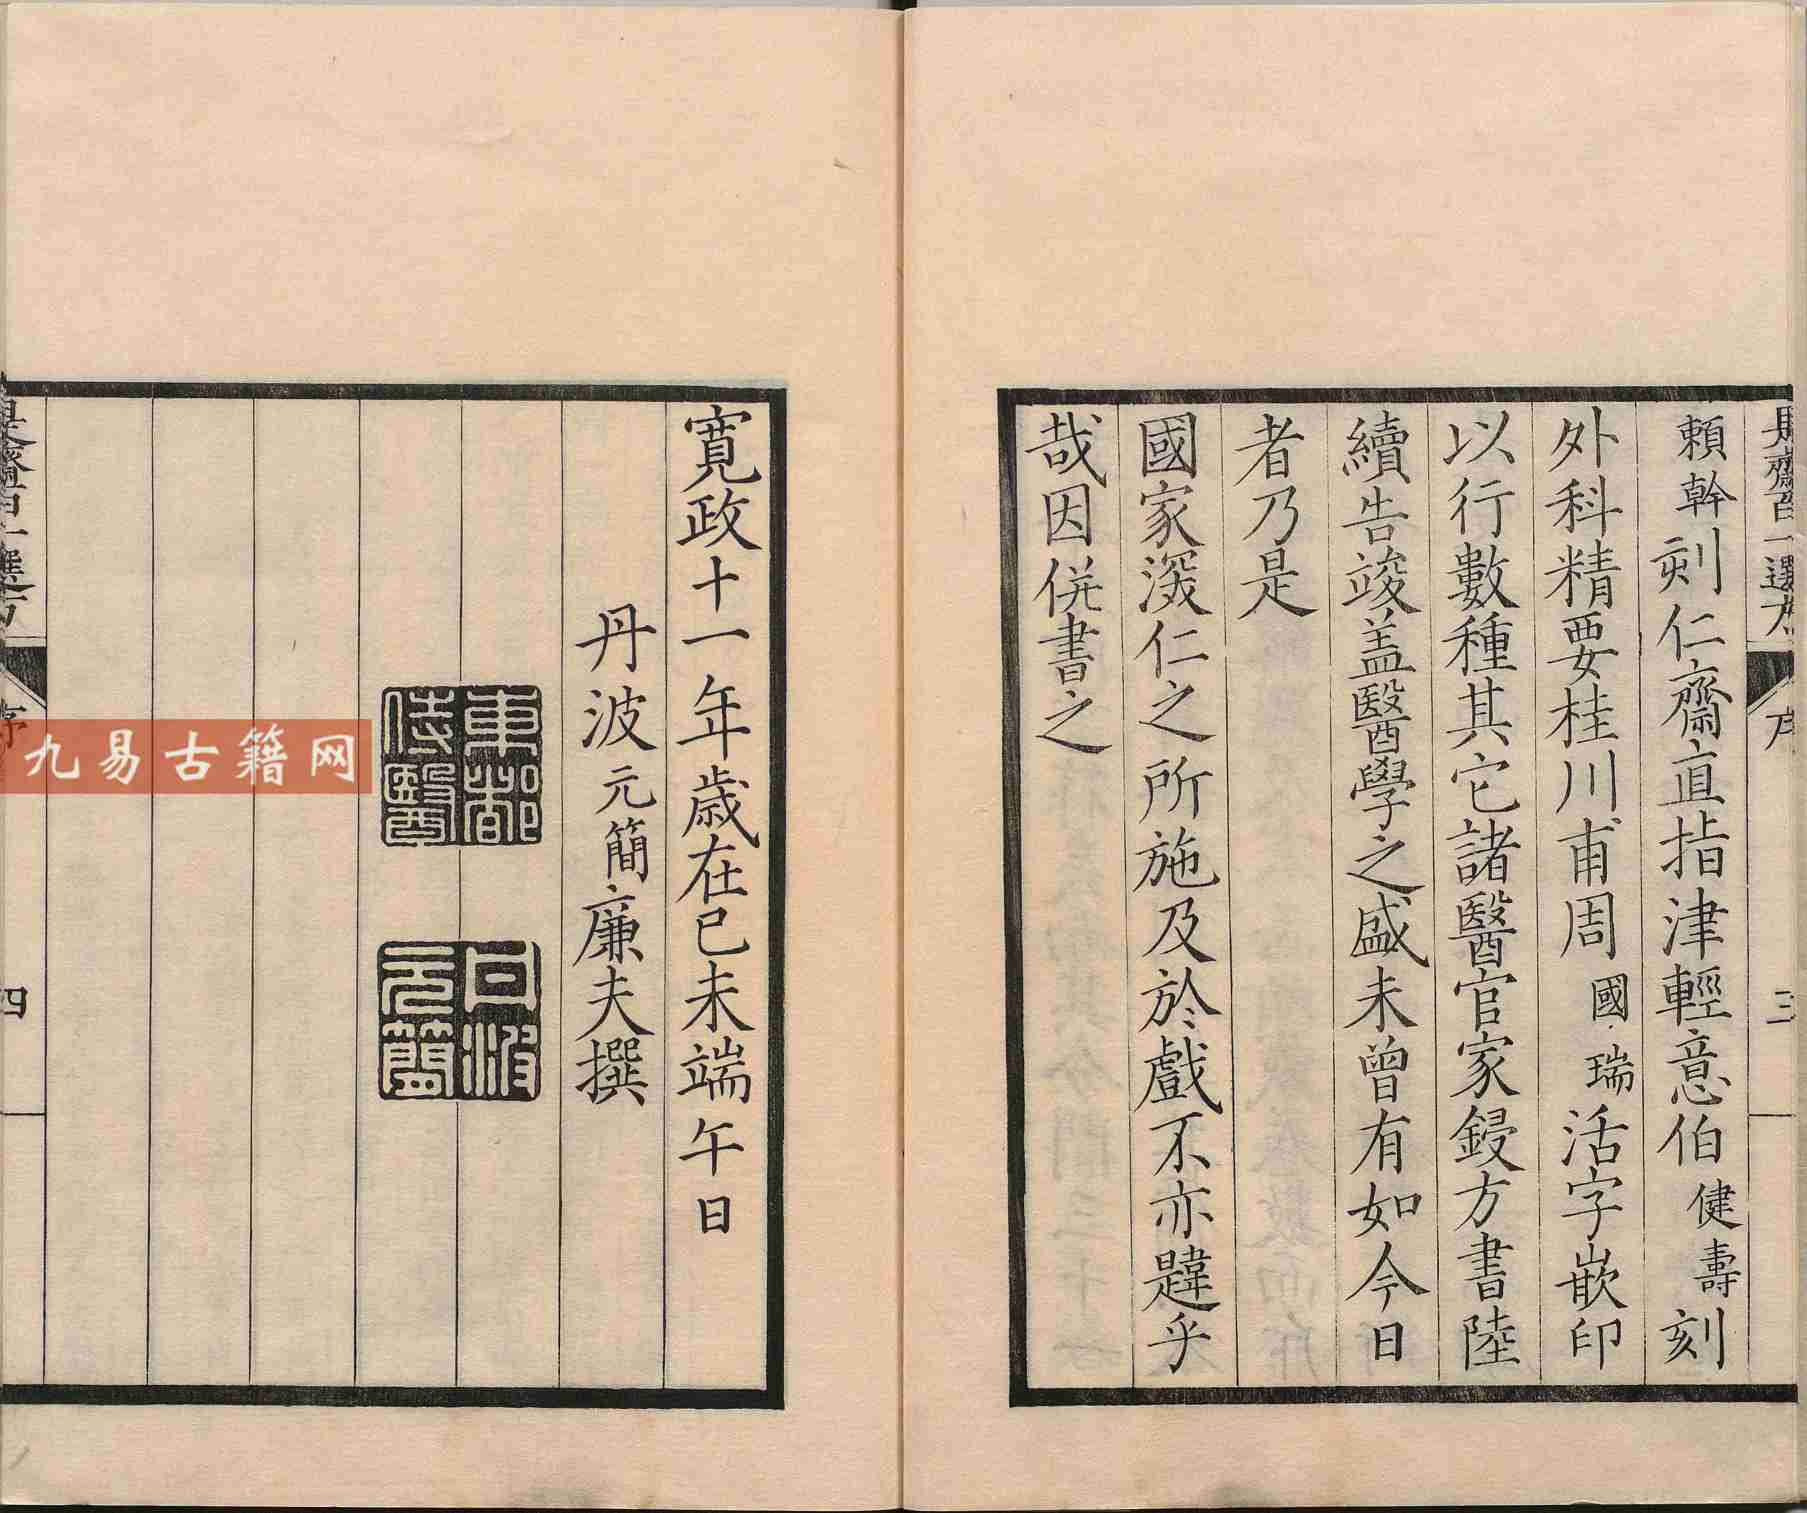 是齋百一選方
序
三
頼幹刻仁齋直指津輕意伯健壽刻
外科精要桂川甫周國瑞活字嵌印
以行數種其它諸醫官家鋟方書陸
續告竣盖醫學之盛未曾有如今日
者乃是
國家深仁之所施及於戲不亦韙乎
哉因併書之
寛政十一年歳在己未端午日
丹波元簡廉夫撰
東都侍醫
丹波元簡
是齋百一選方
序
四
九易古籍网